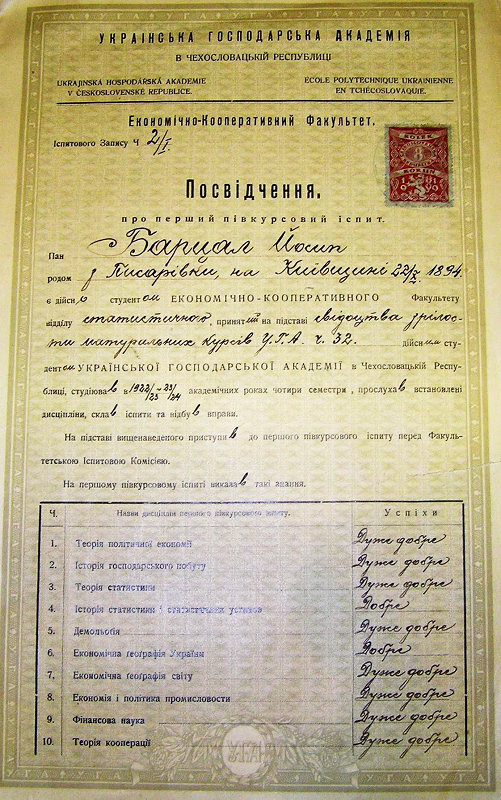 УКРАЇНСЬКА ГОСПОДАРСЬКА АКАДЕМІЯ
В ЧЕХОСЛОВАЦЬКІЙ РЕСПУБЛИЦІ
UKRAJINSKÁ HOSPODÁRSKÁ AKADEMIE
V ČESKOSLOVENSKÉ REPUBLICE.
ÉCOLE POLYTECHNIQUE UKRAINIENNE
EN TCHÉCOSLOVAQUIE.
Економічно-Кооперативний Факультет.
Іспитового Запису Ч 2/I.
KOLEK
8
KORUN
1919
Посвідчення.
про перший півкурсовий іспит.
Пан Барцал Йосип
родом з Писарівки, на Київщині 22/X 1894
є дійсно студентом ЕКОНОМІЧНО-КООПЕРАТИВНОГО Факультету
відділу статистичного, принятий на підставі свідоцтва зрілос-
ти матуральних курсів У.Г.А. ч. 32. дійсним сту-
дентом УКРАЇНСЬКОЇ ГОСПОДАРСЬКОЇ АКАДЕМІЇ в Чехословацькій Респу-
бліці, студіював в 1922/23-23/24 академичних роках чотири семестри, прослухав встановлені
дисципліни, склав іспити та відбув вправи.
На підставі вищенаведеного приступив до першого півкурсового іспиту перед Факуль-
тетською Іспитовою Комісією.
На першому півкурсовому іспиті виказав такі знання.
Ч. Назви дисциплін першого півкурсового іспиту. Успіхи
1. Теорія політичної економії Дуже добре
2. Історія господарського побуту Дуже добре
3. Теорія статистики Дуже добре
4. Історія статистики і статистичних установ Добре
5. Демольоґія Дуже добре
6. Економічна ґеоґрафія України Добре
7. Економічна ґеоґрафія світу Дуже добре
8. Економія і політика промисловости Дуже добре
9. Фінансова наука Дуже добре
10. Теорія кооперації Дуже добре
УГА